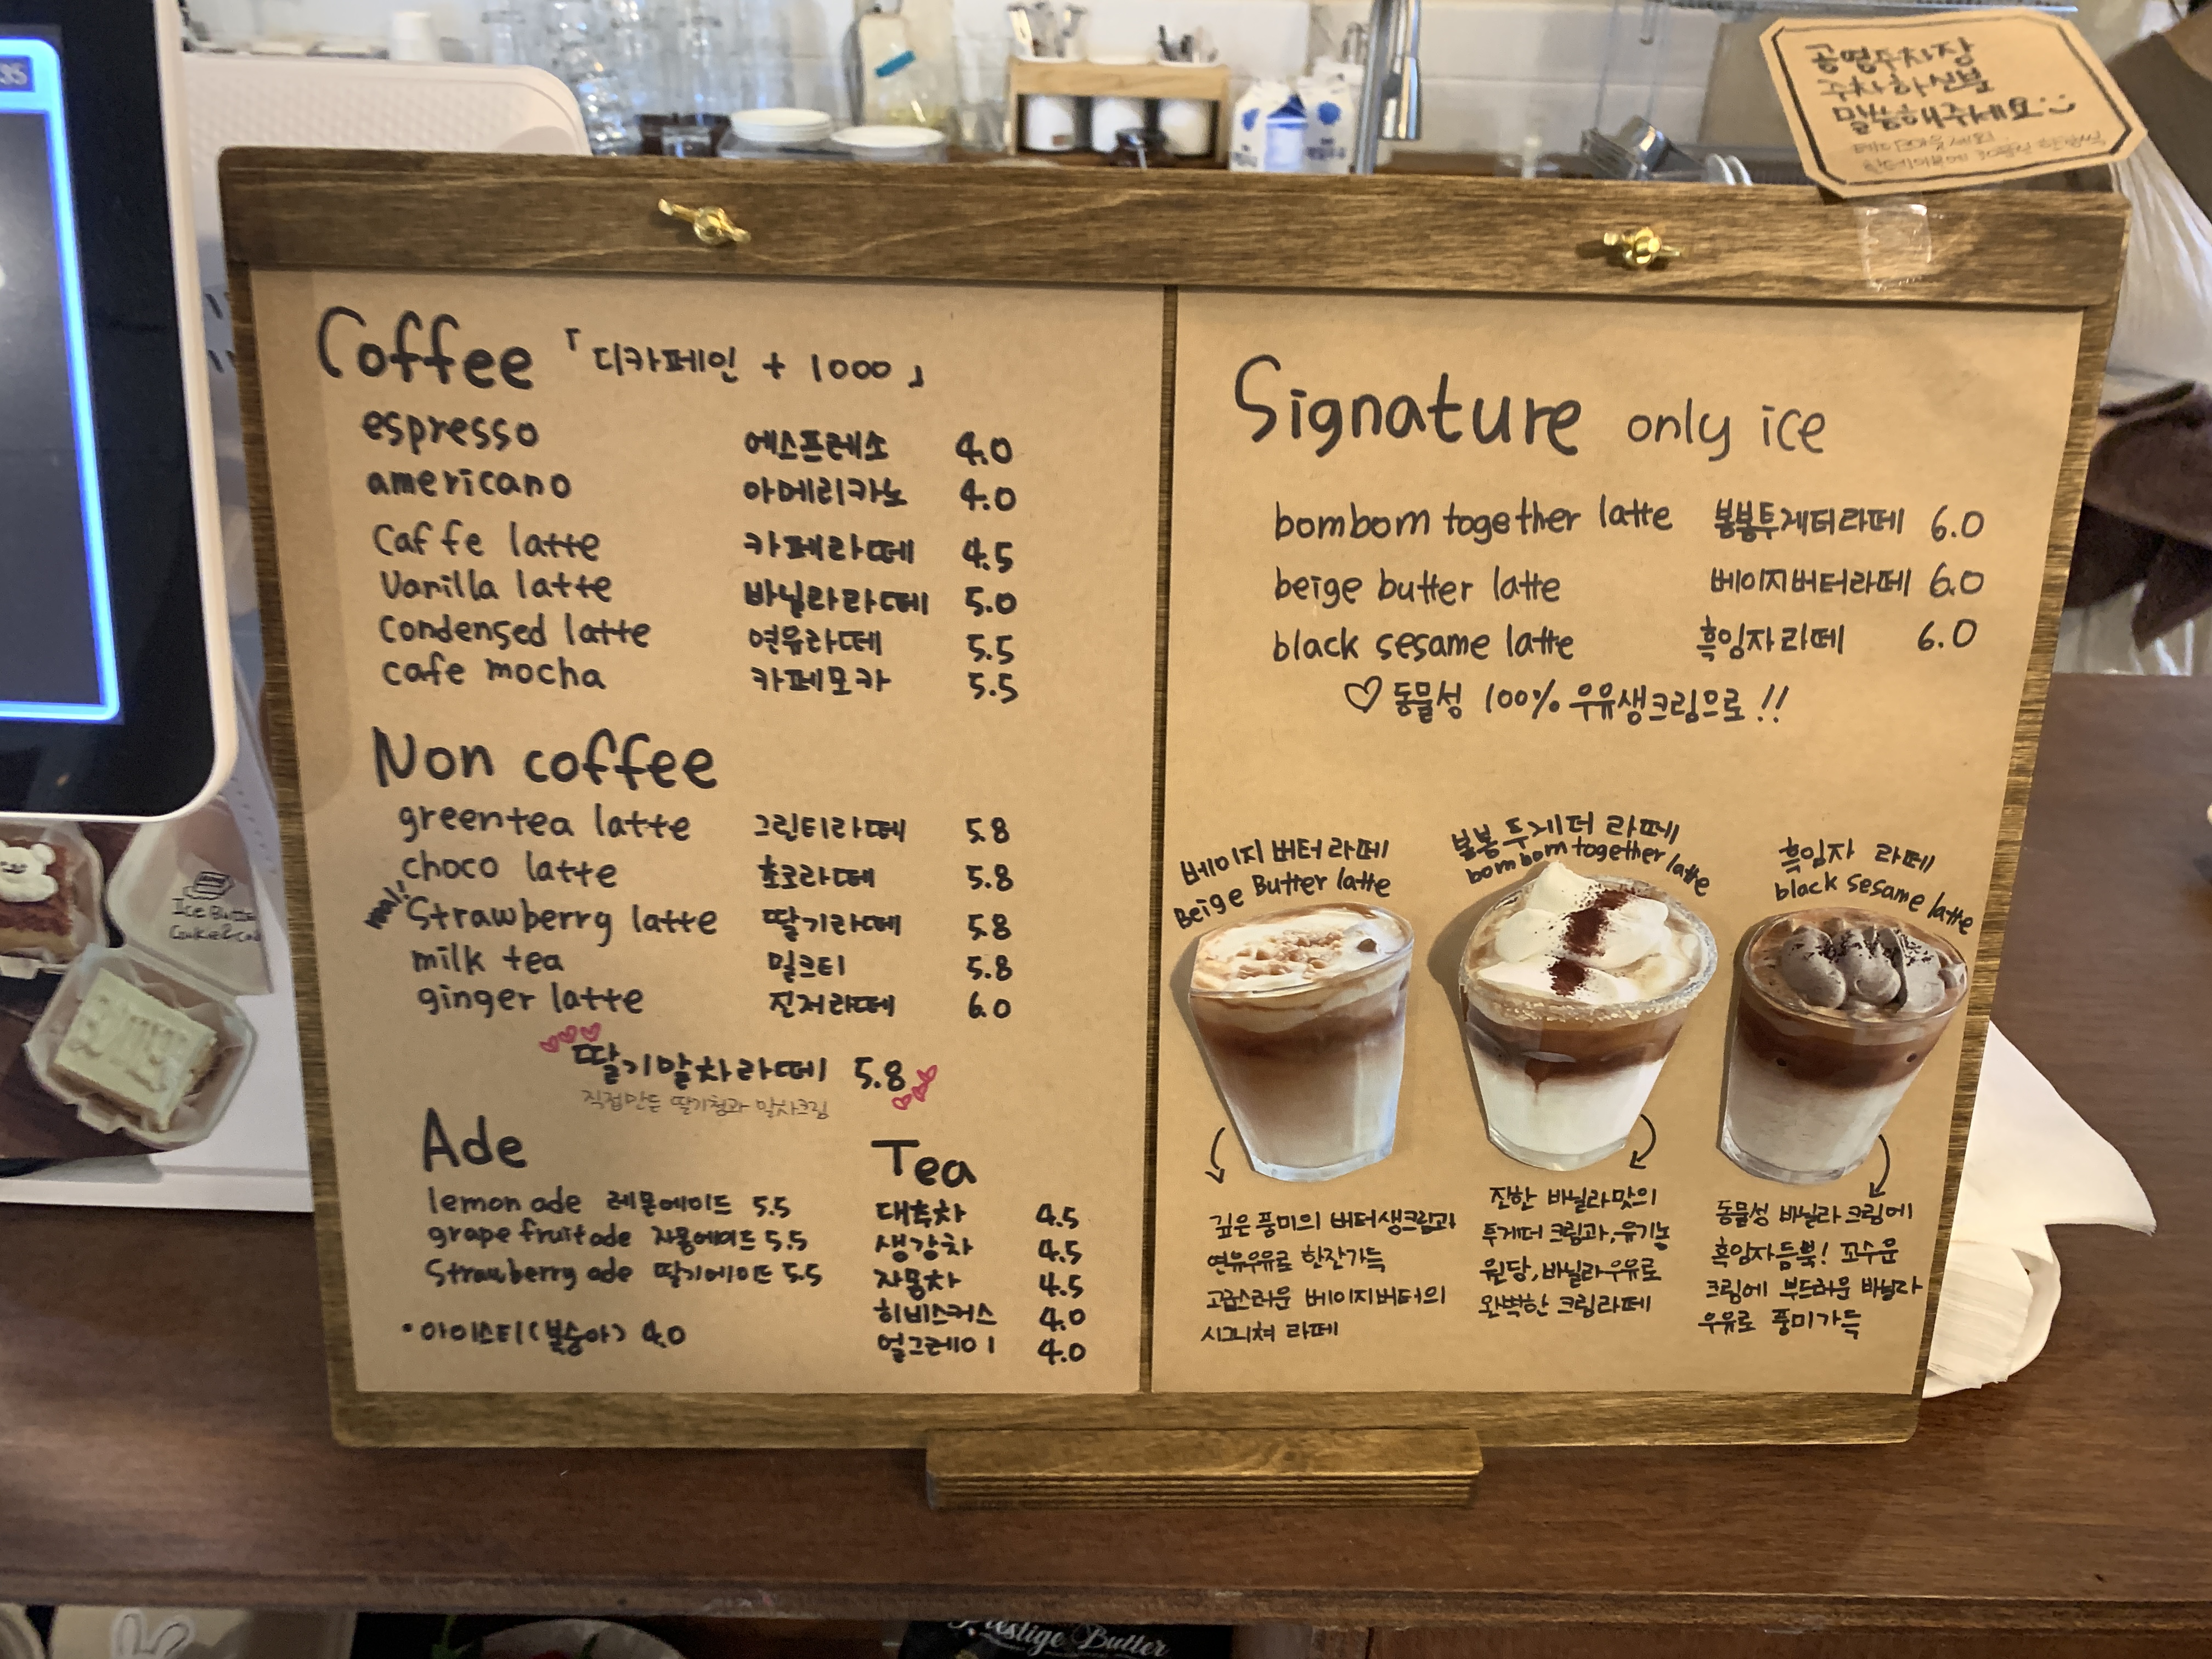 35
공영주차장
주차하신분
말씀해주세요
Coffee 「디카페인 + 1000」
espresso 에스프레소 4.0
americano 아메리카노 4.0
Caffe latte 카페라떼 4.5
Vanilla latte 바닐라라떼 5.0
Condensed latte 연유라떼 5.5
cafe mocha 카페모카 5.5
Non coffee
greentea latte 그린티라떼 5.8
choco latte 초코라떼 5.8
real! Strawberry latte 딸기라떼 5.8
milk tea 밀크티 5.8
ginger latte 진저라떼 6.0
딸기말차라떼 5.8
직접만든 딸기청과 말차크림
Ade
lemon ade 레몬에이드 5.5
grapefruit ade 자몽에이드 5.5
Strawberry ade 딸기에이드 5.5
•아이스티(복숭아) 4.0
Tea
대추차 4.5
생강차 4.5
자몽차 4.5
히비스커스 4.0
얼그레이 4.0
Signature only ice
bombom together latte 봉봉투게더라떼 6.0
beige butter latte 베이지버터라떼 6.0
black sesame latte 흑임자라떼 6.0
♡ 동물성 100% 우유생크림으로!!
베이지 버터 라떼
Beige Butter latte
깊은 풍미의 버터생크림과
연유우유로 한잔가득
고급스러운 베이지버터의
시그니쳐 라떼
봉봉 투게더 라떼
bombom together latte
진한 바닐라맛의
투게더 크림과, 유기농
원당, 바닐라우유로
완벽한 크림라떼
흑임자 라떼
black sesame latte
동물성 바닐라 크림에
흑임자듬뿍! 꼬수운
크림에 부드러운 바닐라
우유로 풍미가득
Prestige Butter